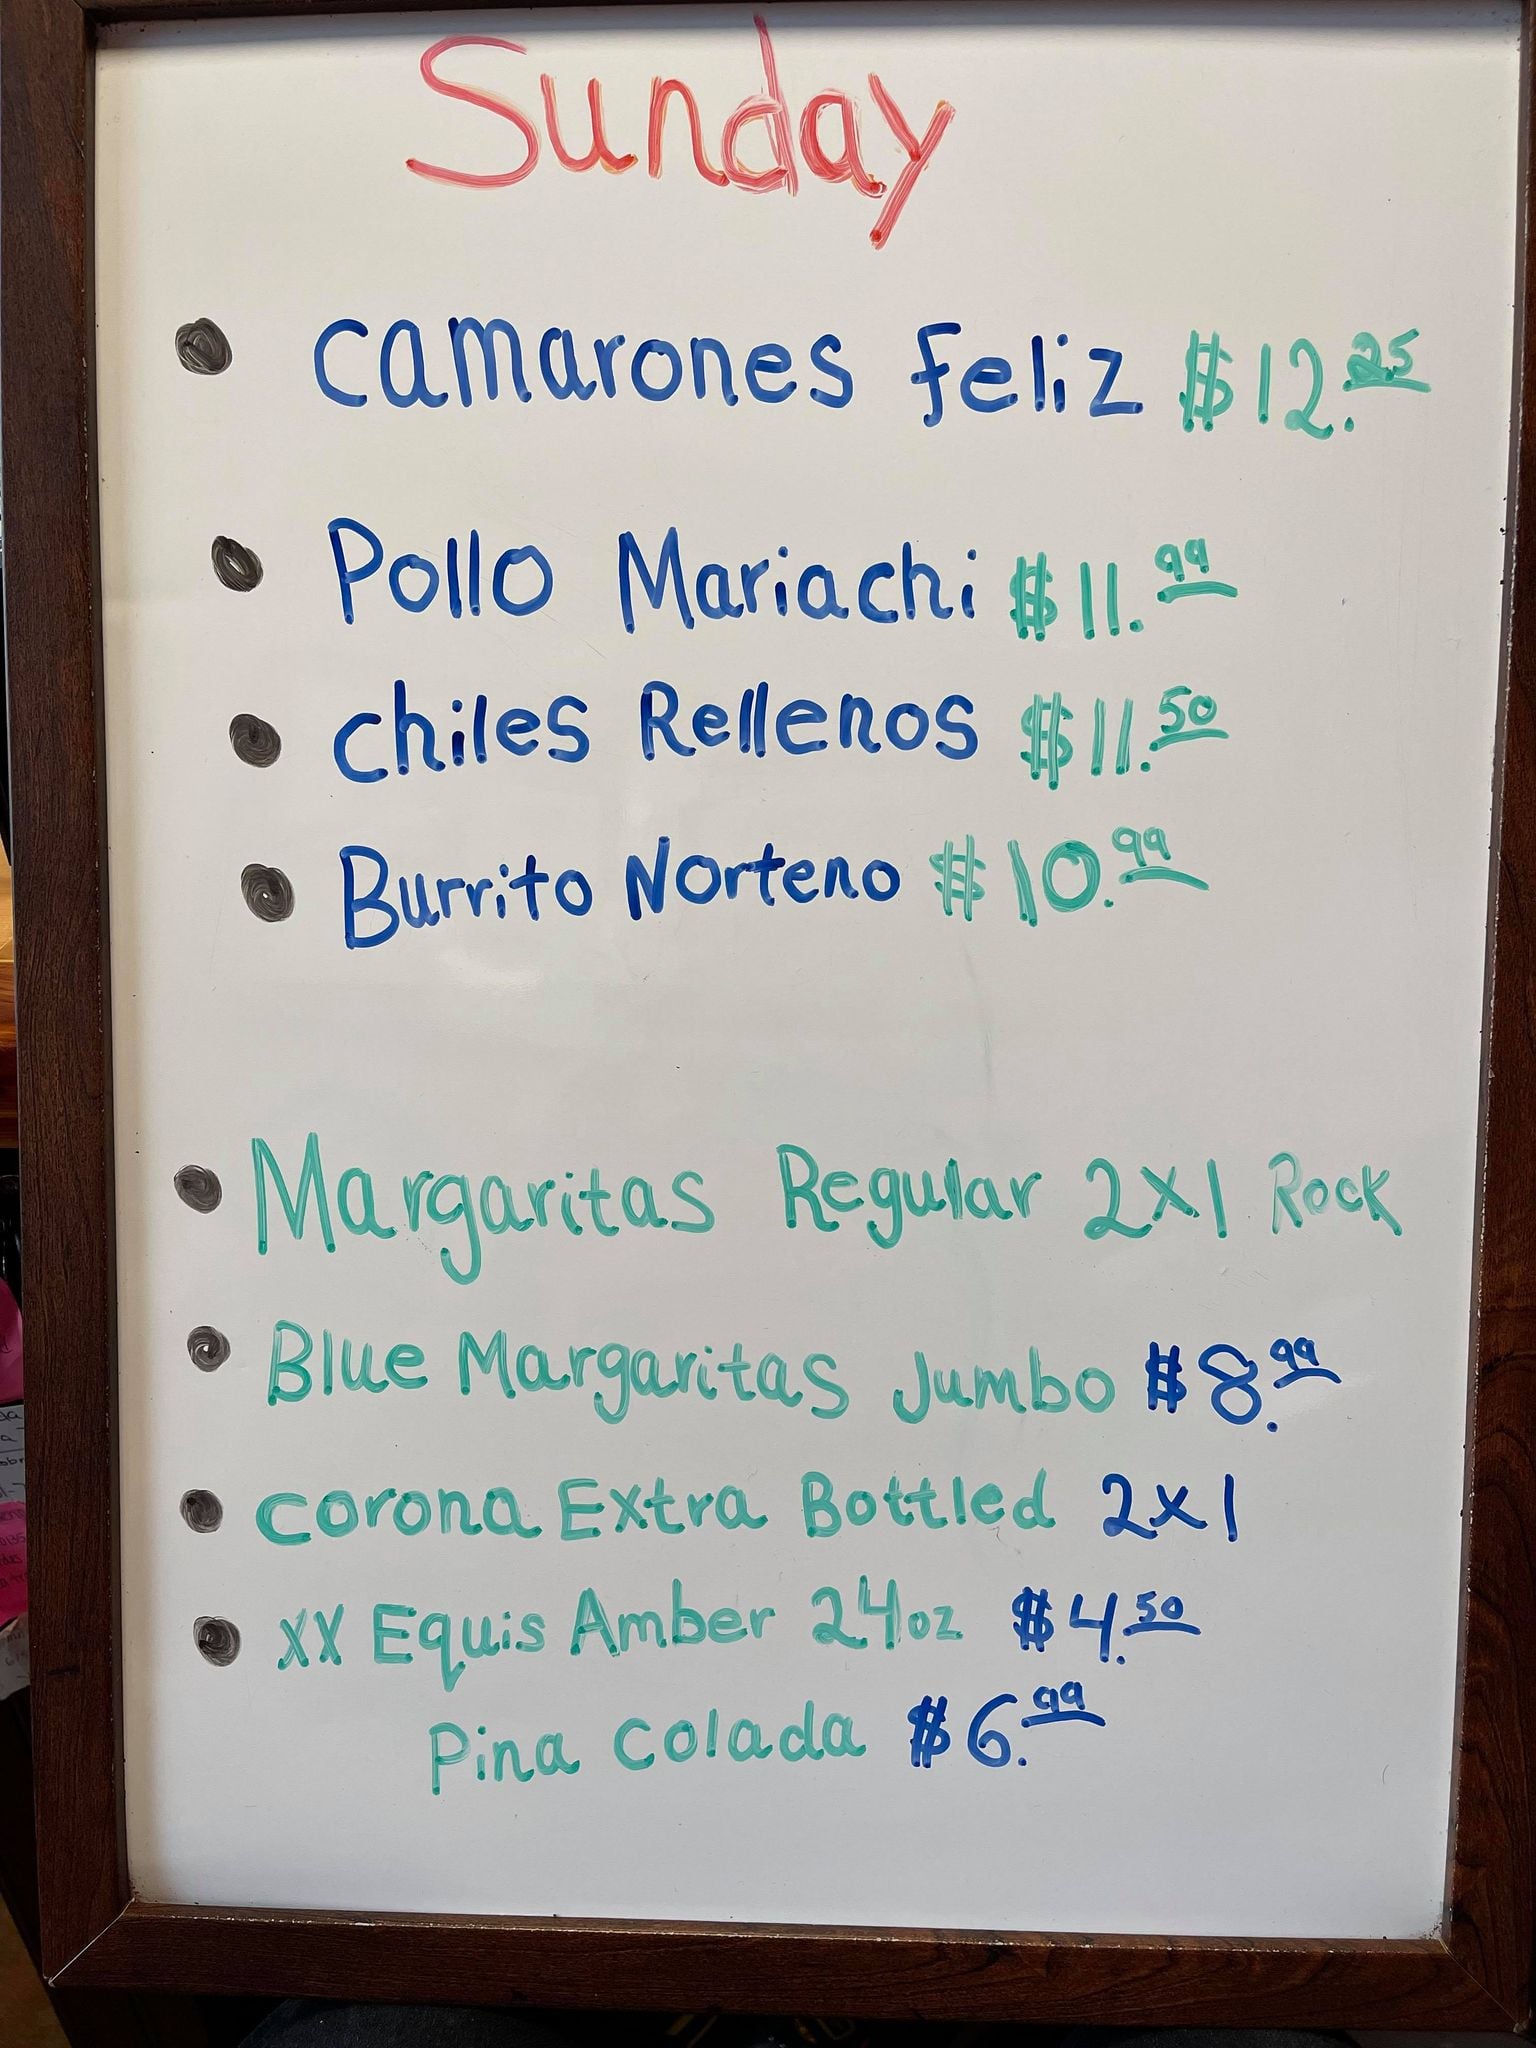 Sunday
• camarones feliz $12.25
• Pollo Mariachi $11.99
• chiles Rellenos $11.50
• Burrito Norteno $10.99
• Margaritas Regular 2x1 Rock
• Blue Margaritas Jumbo $8.99
• corona Extra Bottled 2x1
• XX Equis Amber 24oz $4.50
Pina Colada $6.99